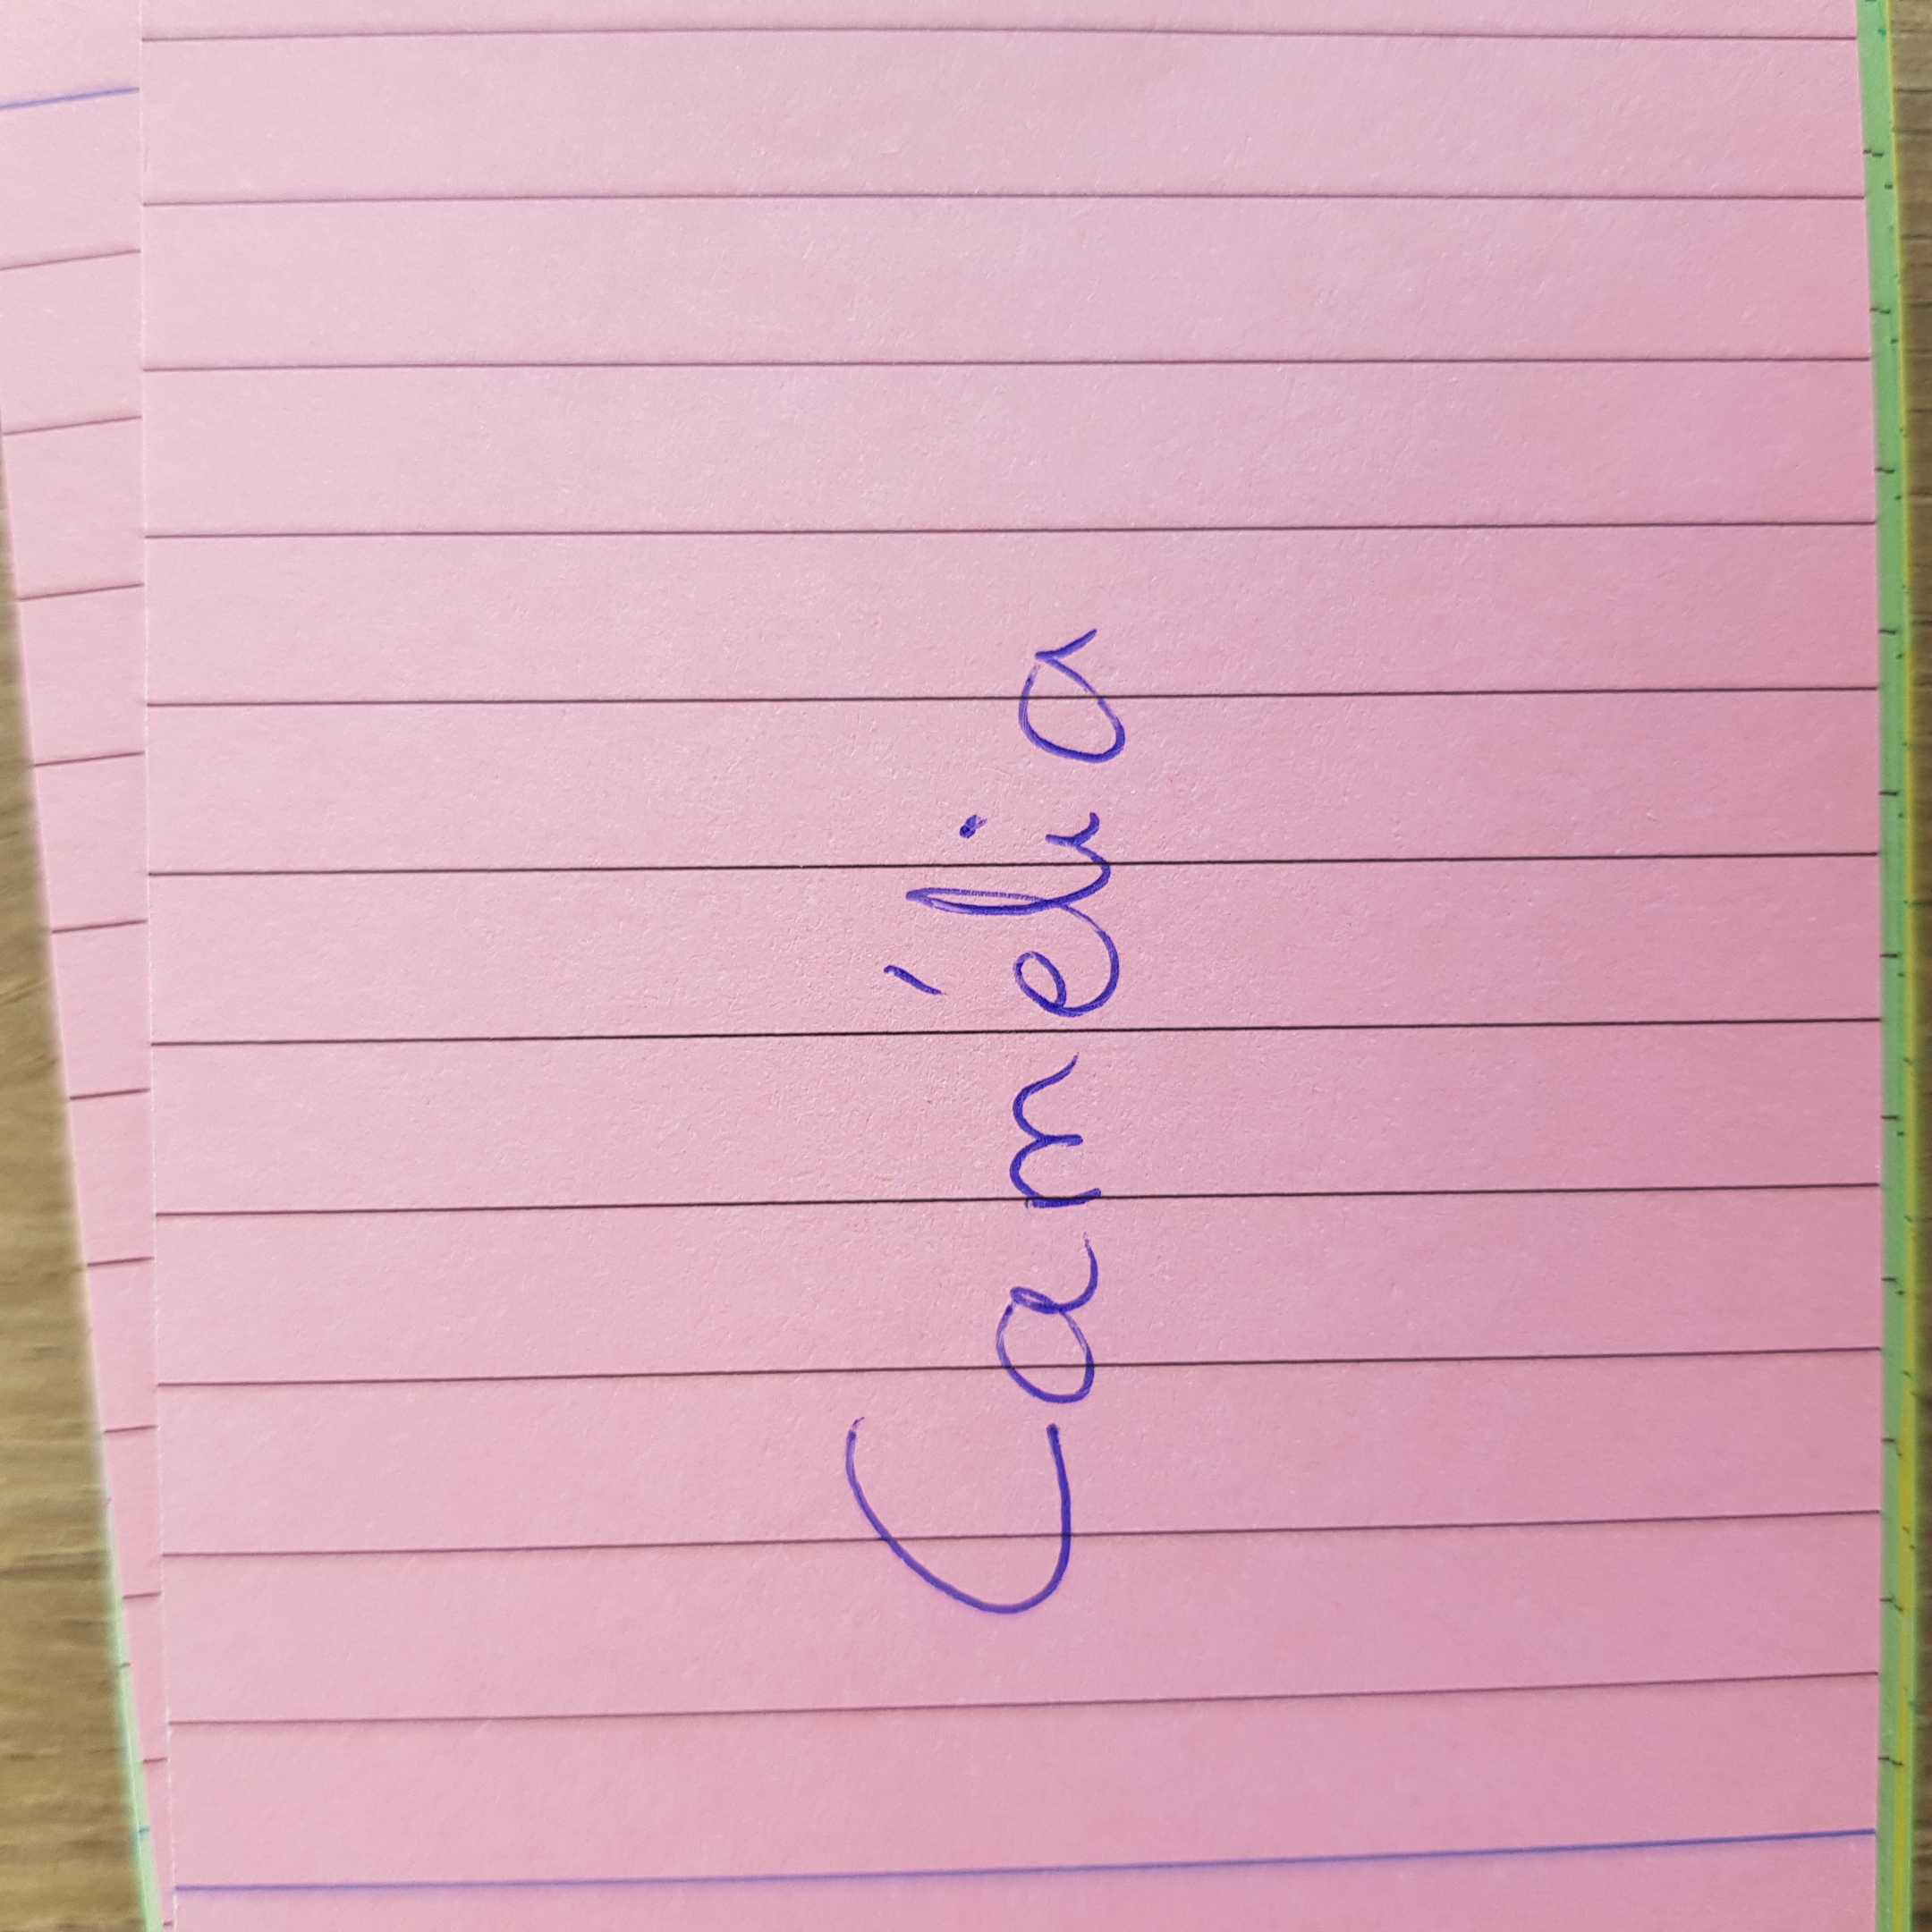 Camélia